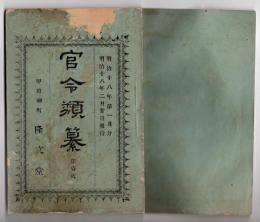 明治十八年第一月分
明治十八年二月廿日發行
官令類纂
第壹號
隆文堂